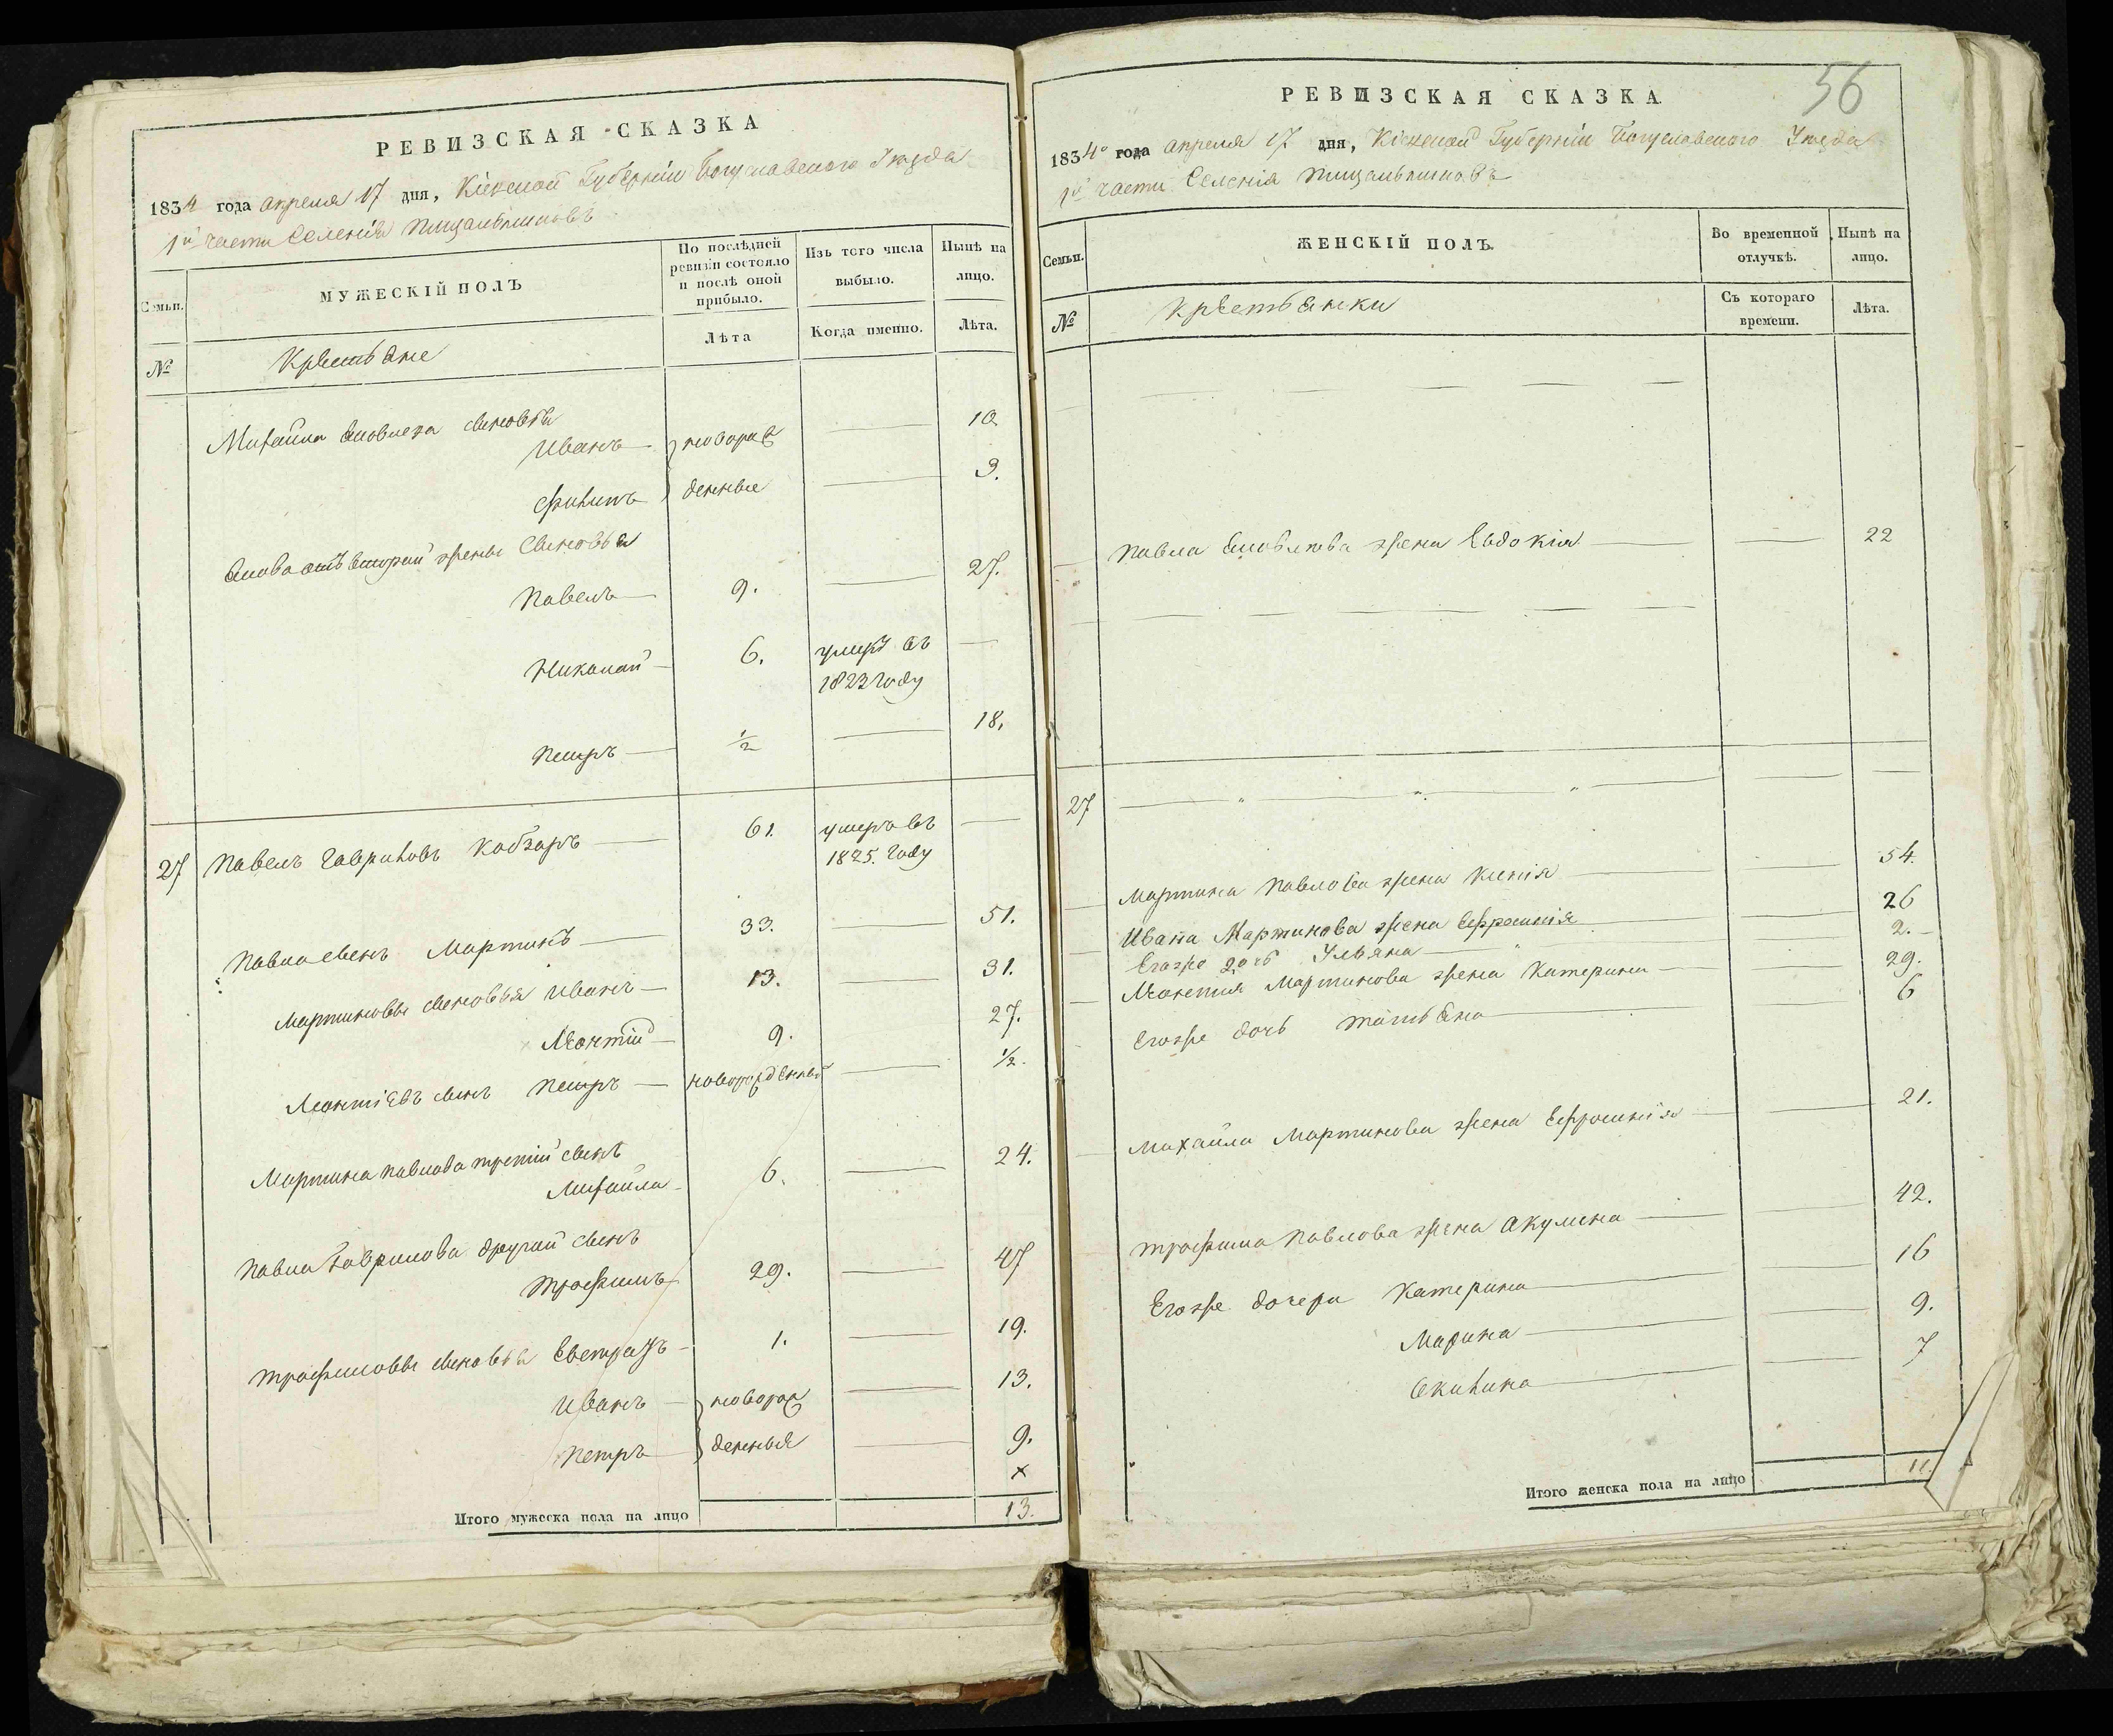 РЕВИЗСКАЯ СКАЗКА
1834 года апреля 17 дня, Кіевской Губерніи Богуславского Уезда
1й части Селенія Пищальниковъ
Семьи.
МУЖЕСКІЙ ПОЛЪ
По послѣдней ревизіи состояло и послѣ оной прибыло.
Изъ того числа выбыло.
Нынѣ на лицо.
№
Крестьяне
Лѣта
Когда именно.
Лѣта.
Михайла сыновья
Иванъ новорож 10
Филипъ денные 3.
отъ второй жены сыновья
Павелъ 9. 27.
Николай 6. умеръ въ 1823 году
Петръ ½ 18.
27 Павелъ Гавриловъ Кобзарь 61. умеръ въ 1825. году
Павла сынъ Мартинъ 33. 51.
Мартиновы сыновья Иванъ 13. 31.
Леонтій 9. 27.
Леонтіевъ сынъ Петръ новорожденный ½.
Мартина Павлова третій сынъ
Михайла 6. 24.
Павла Гаврилова другой сынъ
Трофимъ 29. 47
Трофимовы сыновья Евстрат 1. 19.
Иванъ новорож 13.
Петръ денныя 9.
х
Итого мужеска пола на лицо 13.
56
РЕВИЗСКАЯ СКАЗКА.
1834о года апреля 17 дня, Кіевской Губерніи Богуславского Уезда
1й части Селенія Пищальниковъ
Семьи.
ЖЕНСКІЙ ПОЛЪ.
Во временной отлучкѣ.
Нынѣ на лицо.
№
Крестьянки
Съ котораго времени.
Лѣта.
Павла жена Евдокія 22
27
Мартина Павлова жена Ксенія 54.
Ивана Мартинова жена Ефросинія 26
Егоже дочь Ульяна 2.
Леонтия Мартинова жена Катерина 29.
Егоже дочь Татьяна 6
Михайла Мартинова жена Ефросинія 21.
Трофима Павлова жена Акулина 42.
Егоже дочери Катерина 16
Марина 9.
Акилина 7
Итого женска пола на лицо 11.